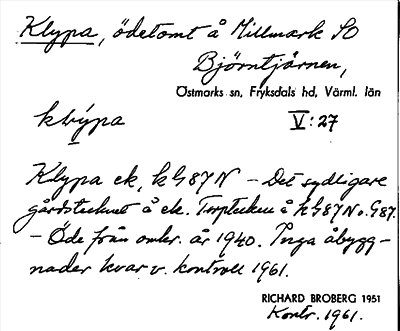 Klypa, ödetomt å Millmark SO
Björntjärnen,
Östmarks sn, Fryksdals hd, Värml. län
klýpa V:27
Klypa ek, k G87N – Det sydligare
gårdstecknet å ek. Torptecken å k G87N o. G87.
– Öde från omkr. år 1940. Inga åbygg-
nader kvar v. kontroll 1961.
RICHARD BROBERG 1951
Kontr. 1961.